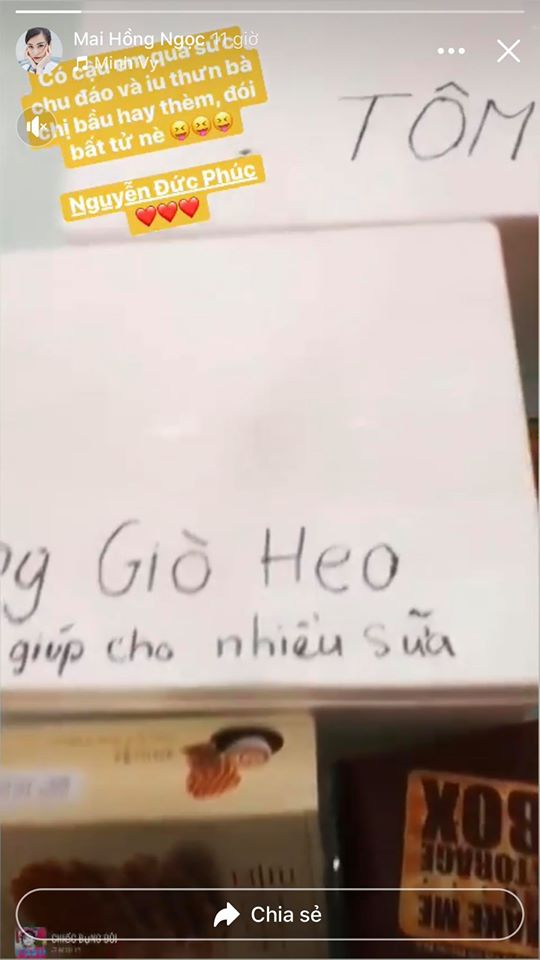 Mai Hồng Ngọc 11 giờ
Minh Vy
Có cậu em quá sức
chu đáo và iu thưn bà
chị bầu hay thèm, đói
bất tử nè 😝😝😝
Nguyễn Đức Phúc
❤️❤️❤️
TÔM
Giò Heo
giúp cho nhiều sữa
BOX
STORAGE
MAKE ME
Chia sẻ
CHIẾC BỤNG ĐÓI